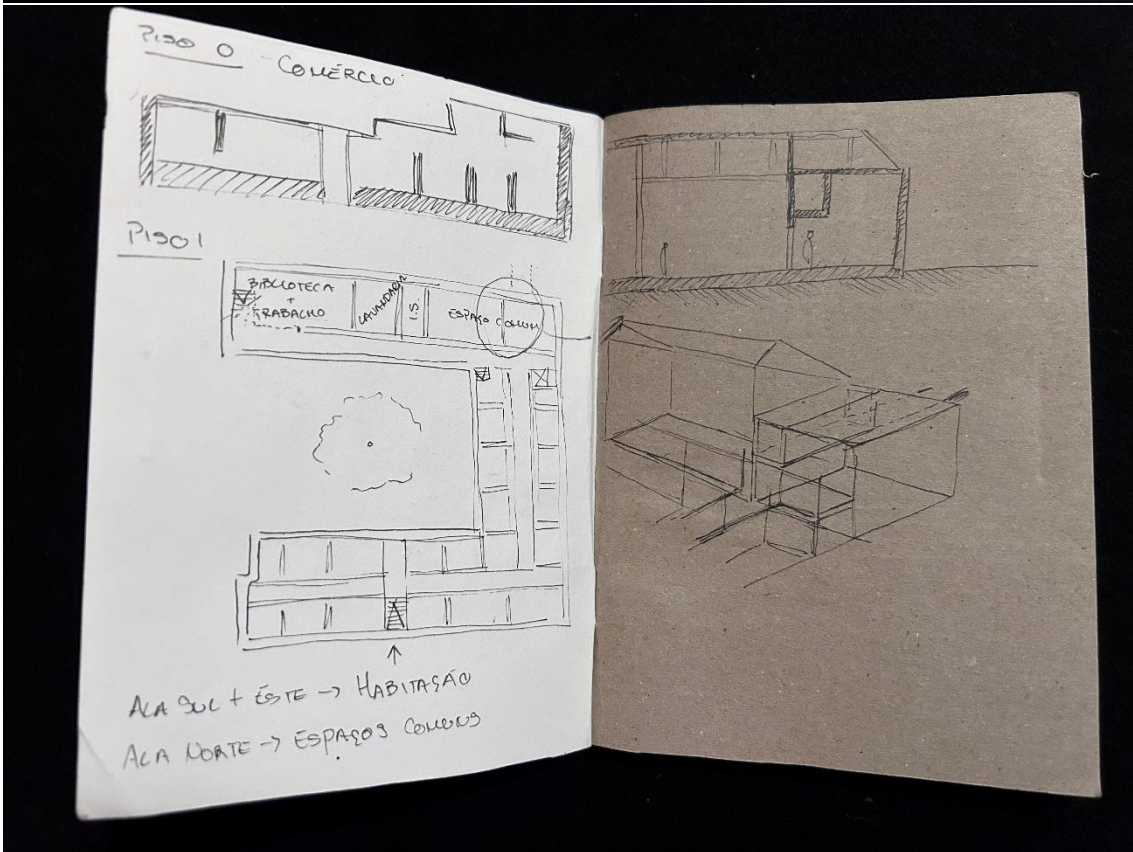 PISO 0
COMÉRCIO
PISO 1
BIBLIOTECA
+
TRABALHO
LAVANDARIA
I.S.
ESPAÇO COMUM
ALA SUL + ÉSTE → HABITAÇÃO
ALA NORTE → ESPAÇOS COMUNS